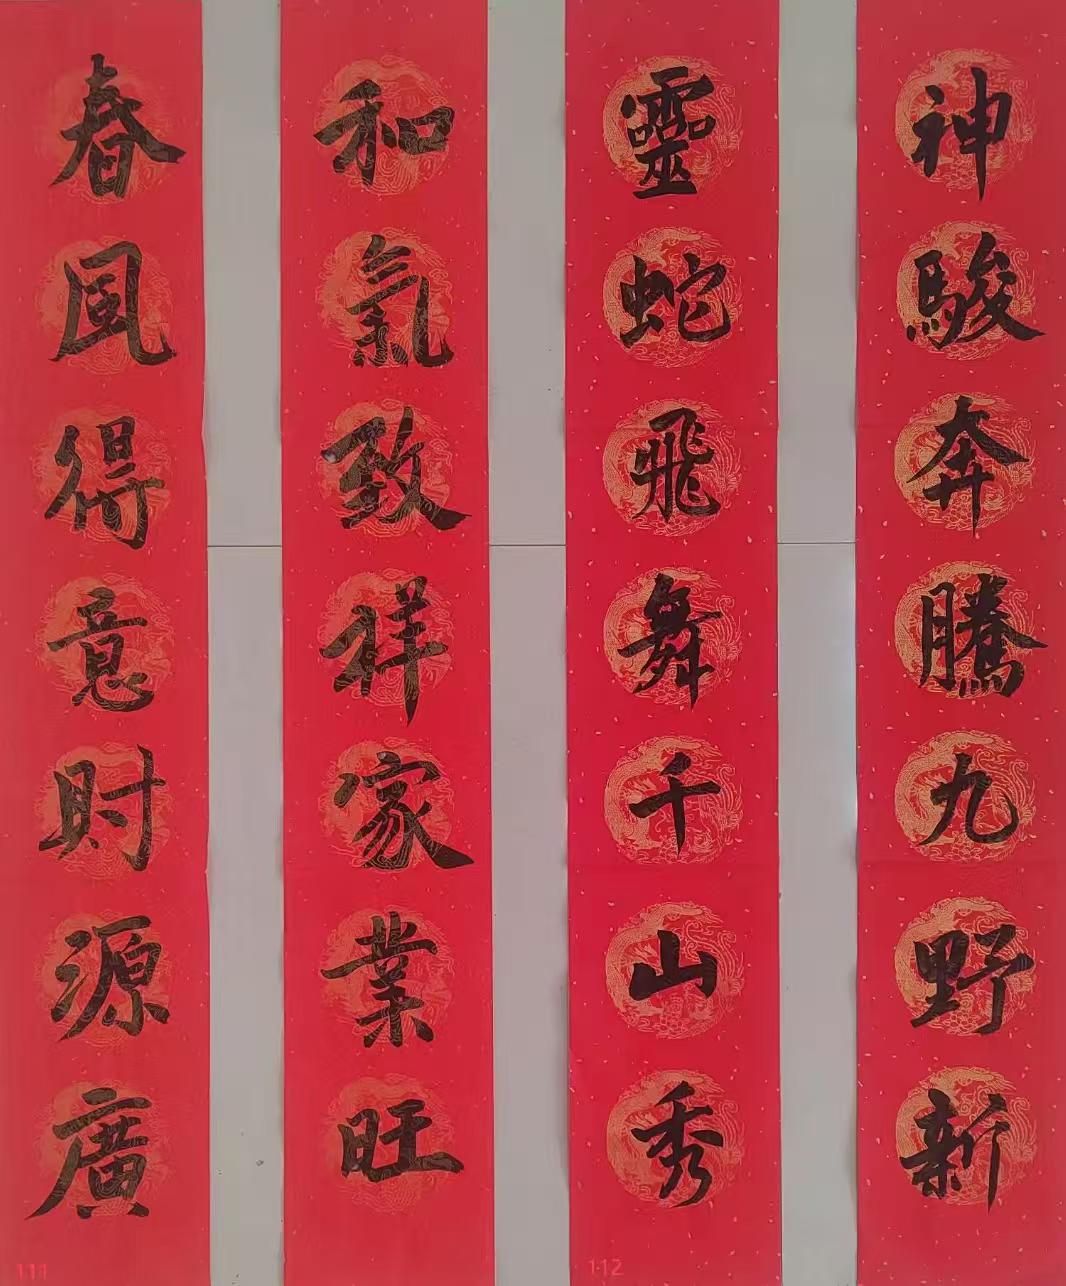 神駿奔騰九野新
靈蛇飛舞千山秀
和氣致祥家業旺
春風得意財源廣
112
111